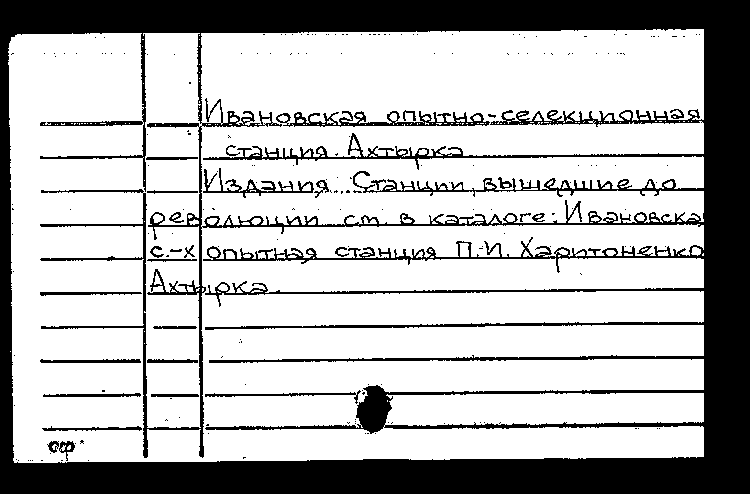 Ивановская опытно-селекционная
станция. Ахтырка
Издания Станции, вышедшие до
революции см. в каталоге: Ивановская
с.-х опытная станция П.И. Харитоненко
Ахтырка.
оф